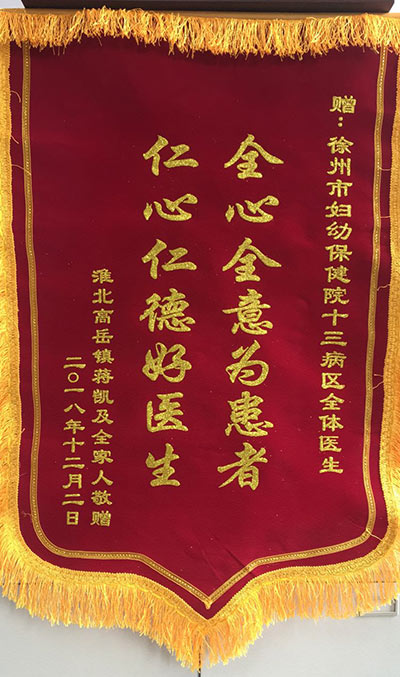 赠：徐州市妇幼保健院十三病区全体医生
全心全意为患者
仁心仁德好医生
淮北高岳镇蒋凯及全家人敬赠
二〇一八年十二月二日